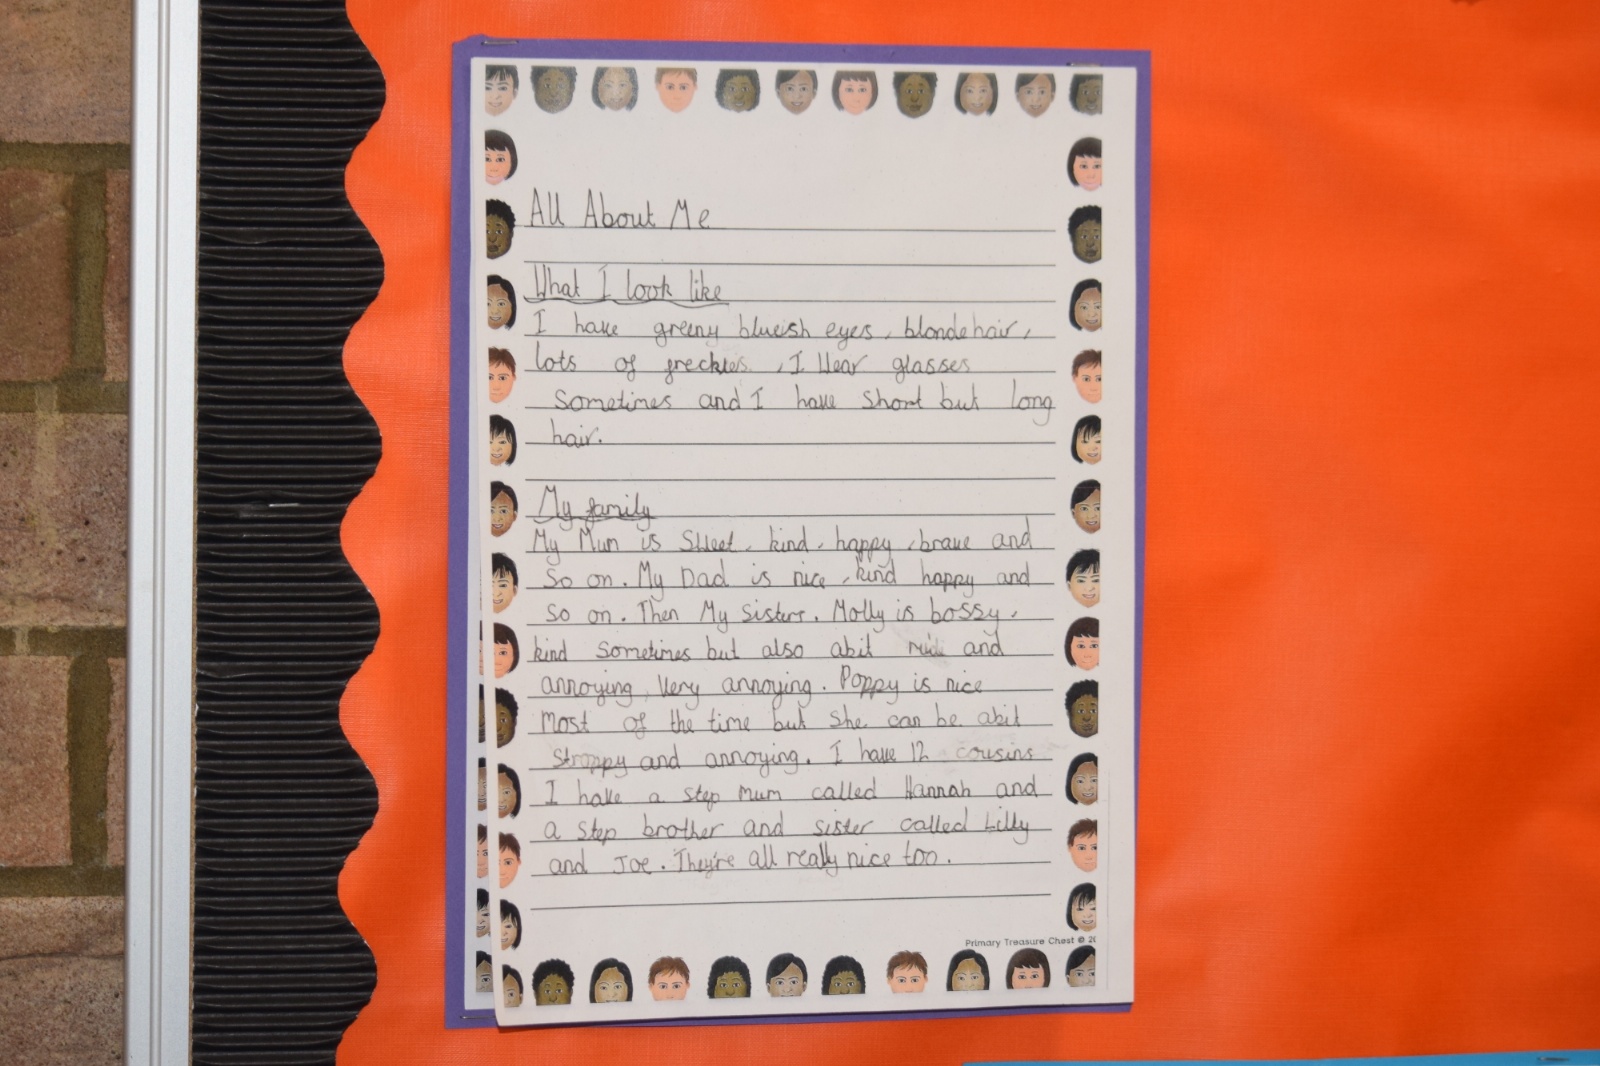 All About Me
What I look like
I have greeny blueish eyes, blonde hair,
lots of freckles, I Wear glasses
Sometimes and I have Short but long
hair.
My family
My Mum is Sweet, kind, happy, brave and
So on. My Dad is nice, kind happy and
So on. Then My Sisters. Molly is bossy,
kind Sometimes but also abit rude and
annoying, Very annoying. Poppy is nice
Most of the time but She can be abit
Stroppy and annoying. I have 12 cousins
I have a Step Mum called Hannah and
a Step brother and sister called Lilly
and Joe. They're all really nice too.
Primary Treasure Chest © 20